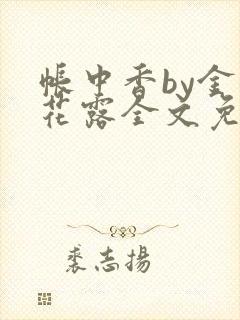 帐中香by金
花露全文免
裘志扬